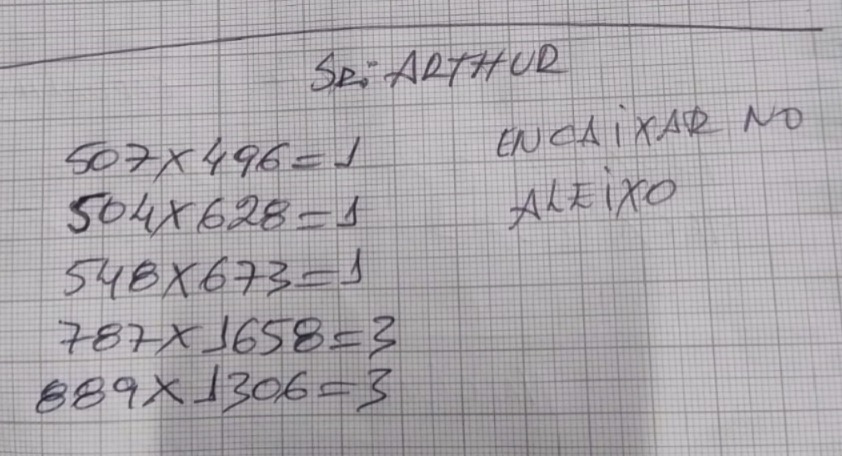 SR: ARTHUR
507x496=1
504x628=1
548x673=1
787x1658=3
889x1306=3
ENCAIXAR NO
ALEIXO